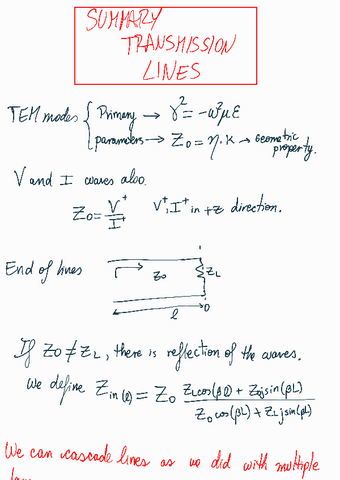 SUMMARY
TRANSMISSION
LINES
TEM modes { Primary → γ² = -ω²με
parameters → Z₀ = η·K → Geometric property.
V and I waves also.
Z₀ = V⁺/I⁺ V⁺, I⁺ in +z direction.
End of lines
Z₀ ZL
l 0
If Z₀ ≠ ZL, there is reflection of the waves.
We define Zin(l) = Z₀ (ZL cos(βl) + Z₀ j sin(βL)) / (Z₀ cos(βL) + ZL j sin(βL))
We can cascade lines as we did with multiple